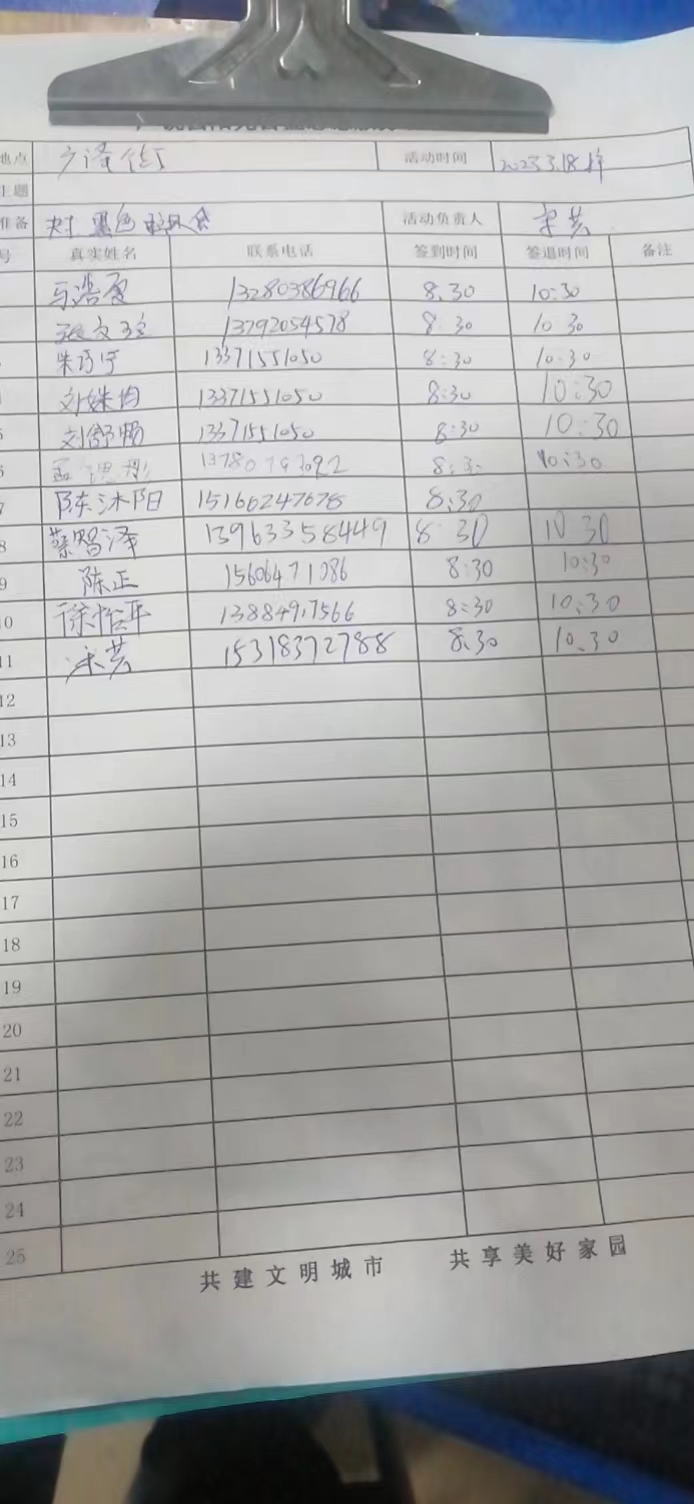 地点 广泽街 活动时间 2023.3.18
主题
准备 夹子 黑色垃圾袋 活动负责人
号 真实姓名 联系电话 签到时间 签退时间 备注
13280386966 8:30 10:30
13792054578 8:30 10 30
13371551050 8:30 10:30
刘姝均 13371551050 8:30 10:30
5 刘舒畅 13371551050 8:30 10:30
6 8:30 10:30
7 陈沐阳 15166247678 8:30
8 蔡智泽 13963358449 8 30 10 30
9 陈正 15606471086 8:30 10:30
10 徐怡平 8:30 10:30
11 15318372788 8.30 10.30
12
13
14
15
16
17
18
19
20
21
22
23
24
25
共建文明城市 共享美好家园